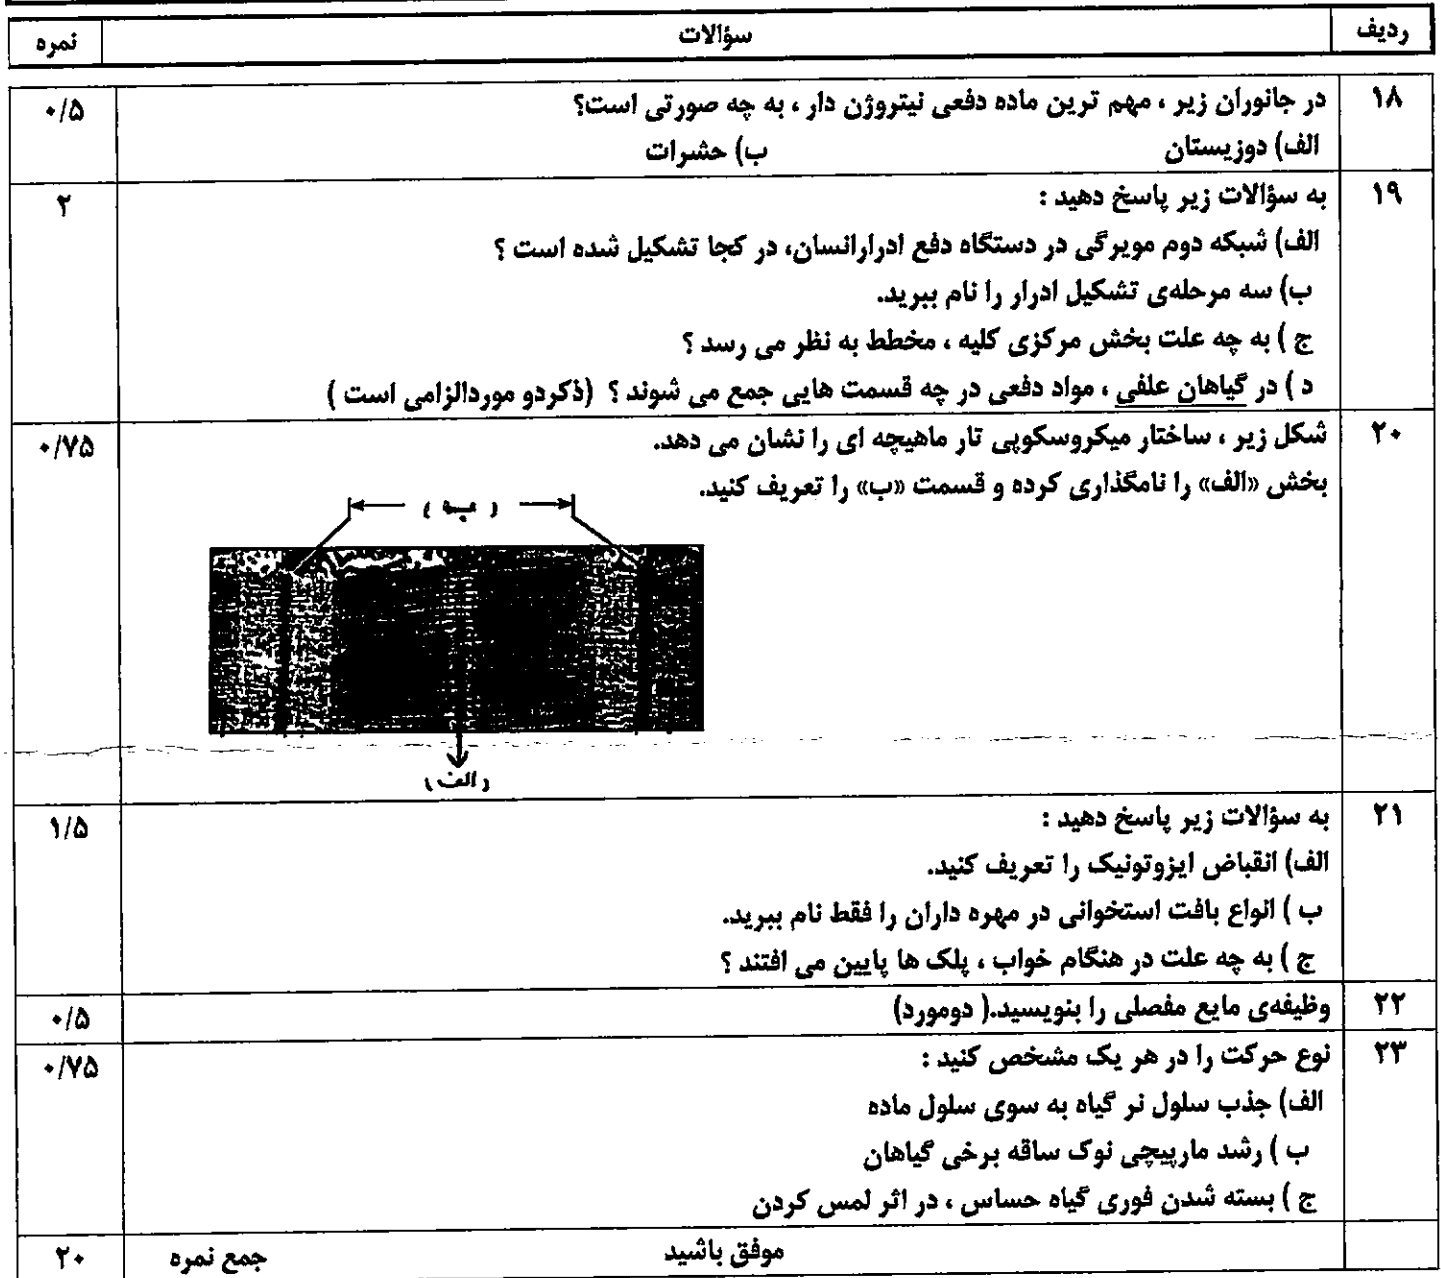 ردیف سؤالات نمره
۱۸ در جانوران زیر ، مهم ترین ماده دفعی نیتروژن دار ، به چه صورتی است؟ ۰/۵
الف) دوزیستان ب) حشرات
۱۹ به سؤالات زیر پاسخ دهید : ۲
الف) شبکه دوم مویرگی در دستگاه دفع ادرارانسان، در کجا تشکیل شده است ؟
ب) سه مرحله‌ی تشکیل ادرار را نام ببرید.
ج ) به چه علت بخش مرکزی کلیه ، مخطط به نظر می رسد ؟
د ) در گیاهان علفی ، مواد دفعی در چه قسمت هایی جمع می شوند ؟ (ذکردو موردالزامی است )
۲۰ شکل زیر ، ساختار میکروسکوپی تار ماهیچه ای را نشان می دهد. ۰/۷۵
بخش «الف» را نامگذاری کرده و قسمت «ب» را تعریف کنید.
( ب )
(الف)
۲۱ به سؤالات زیر پاسخ دهید : ۱/۵
الف) انقباض ایزوتونیک را تعریف کنید.
ب ) انواع بافت استخوانی در مهره داران را فقط نام ببرید.
ج ) به چه علت در هنگام خواب ، پلک ها پایین می افتند ؟
۲۲ وظیفه‌ی مایع مفصلی را بنویسید.( دومورد) ۰/۵
۲۳ نوع حرکت را در هر یک مشخص کنید : ۰/۷۵
الف) جذب سلول نر گیاه به سوی سلول ماده
ب ) رشد مارپیچی نوک ساقه برخی گیاهان
ج ) بسته شدن فوری گیاه حساس ، در اثر لمس کردن
موفق باشید جمع نمره ۲۰